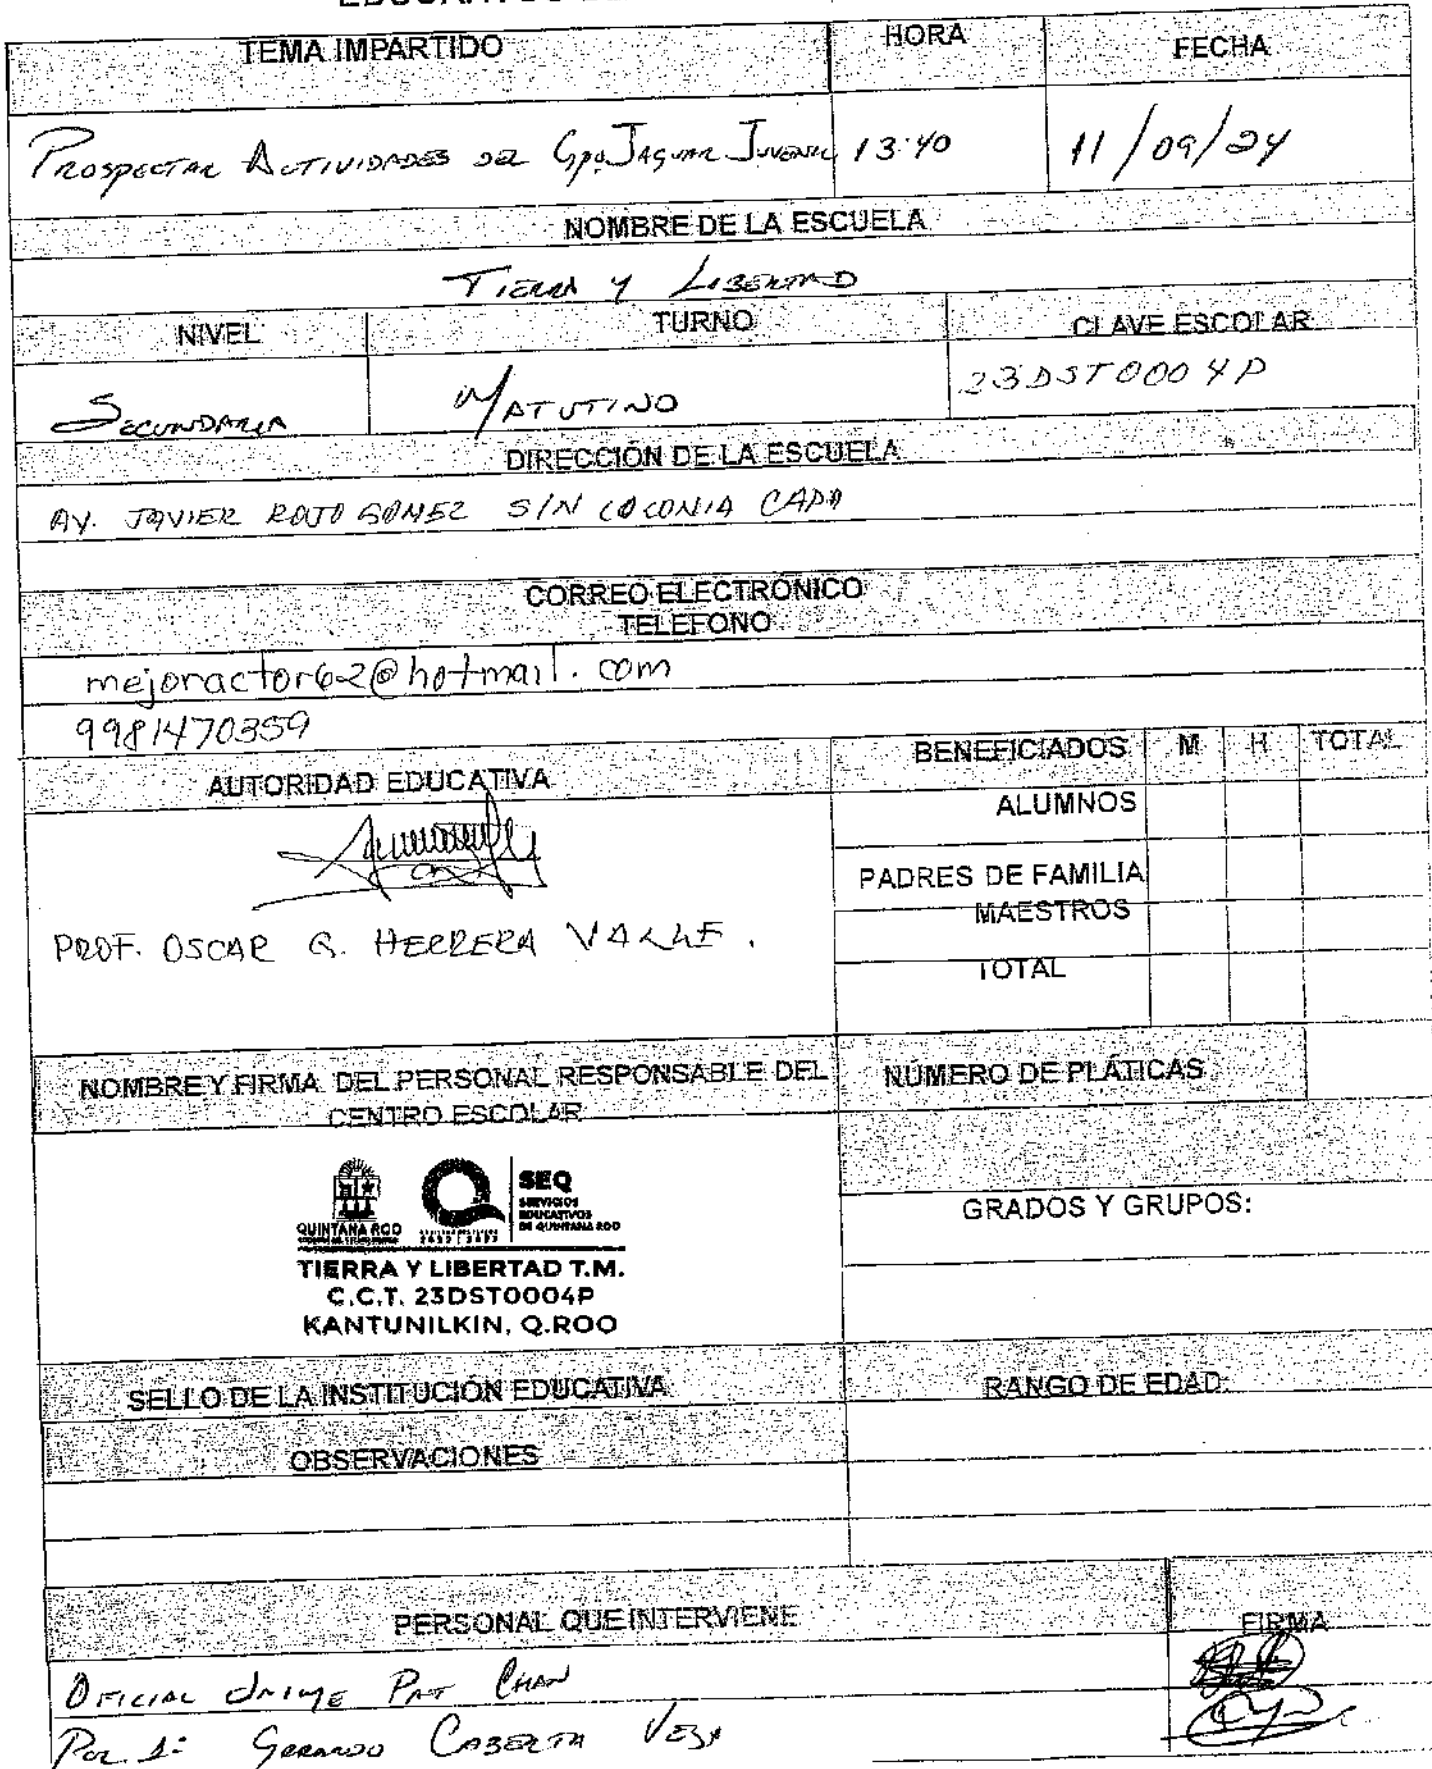 TEMA IMPARTIDO HORA FECHA
Prospectar Actividades del Gpo. Jaguar Juvenil 13:40 11/09/24
NOMBRE DE LA ESCUELA
Tierra y Libertad
NIVEL TURNO CLAVE ESCOLAR
Secundaria Matutino 23DST0004P
DIRECCIÓN DE LA ESCUELA
AV. JAVIER ROJO GOMEZ S/N COLONIA CAPA
CORREO ELECTRÓNICO
TELEFONO
mejoractor62@hotmail.com
9981470359
AUTORIDAD EDUCATIVA BENEFICIADOS M H TOTAL
ALUMNOS
PADRES DE FAMILIA
MAESTROS
PROF. OSCAR G. HERRERA VALLE.
TOTAL
NOMBRE Y FIRMA DEL PERSONAL RESPONSABLE DEL NÚMERO DE PLÁTICAS
CENTRO ESCOLAR
SEQ
SERVICIOS
EDUCATIVOS
DE QUINTANA ROO
QUINTANA ROO
GRADOS Y GRUPOS:
TIERRA Y LIBERTAD T.M.
C.C.T. 23DST0004P
KANTUNILKIN, Q.ROO
SELLO DE LA INSTITUCIÓN EDUCATIVA RANGO DE EDAD:
OBSERVACIONES
PERSONAL QUE INTERVIENE FIRMA
Oficial Jaime Pat Chan
Gerardo Vega